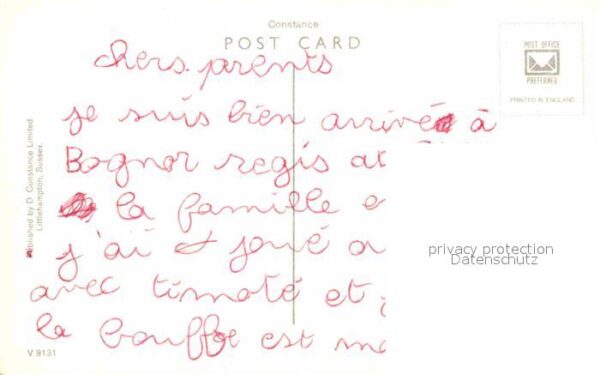 Constance
POST CARD
POST OFFICE
PREFERRED
PRINTED IN ENGLAND
chers prents
je suis bien arrivé à
Bognor regis
la famille
j'ai joué
avec timoté et
la bouffe est
Published by D. Constance Limited
Littlehampton, Sussex.
V 9131
privacy protection
Datenschutz